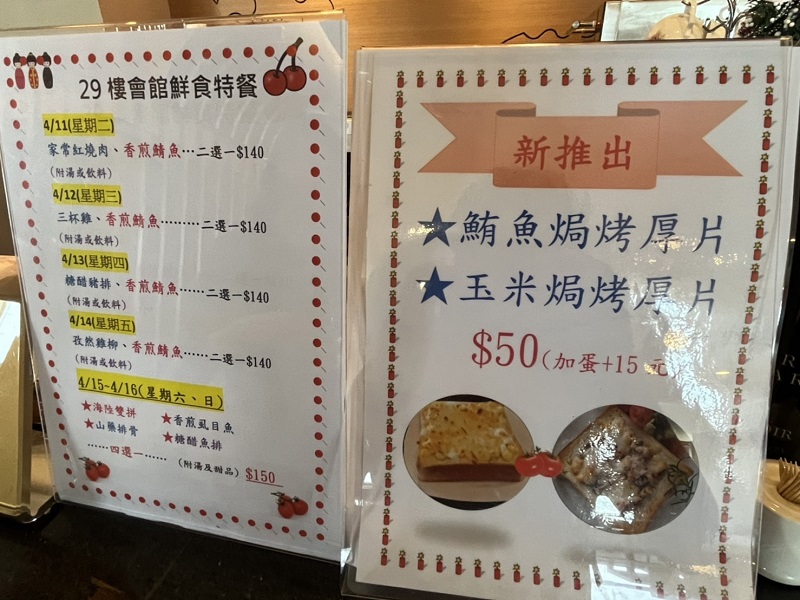 29 樓會館鮮食特餐
4/11(星期二)
家常紅燒肉、香煎鯖魚…二選一$140
(附湯或飲料)
4/12(星期三)
三杯雞、香煎鯖魚………二選一$140
(附湯或飲料)
4/13(星期四)
糖醋豬排、香煎鯖魚……二選一$140
(附湯或飲料)
4/14(星期五)
孜然雞柳、香煎鯖魚……二選一$140
(附湯或飲料)
4/15~4/16(星期六、日)
★海陸雙拼 ★香煎虱目魚
★山藥排骨 ★糖醋魚排
……四選一……
(附湯及甜品) $150
新推出
★鮪魚焗烤厚片
★玉米焗烤厚片
$50(加蛋+15 元)